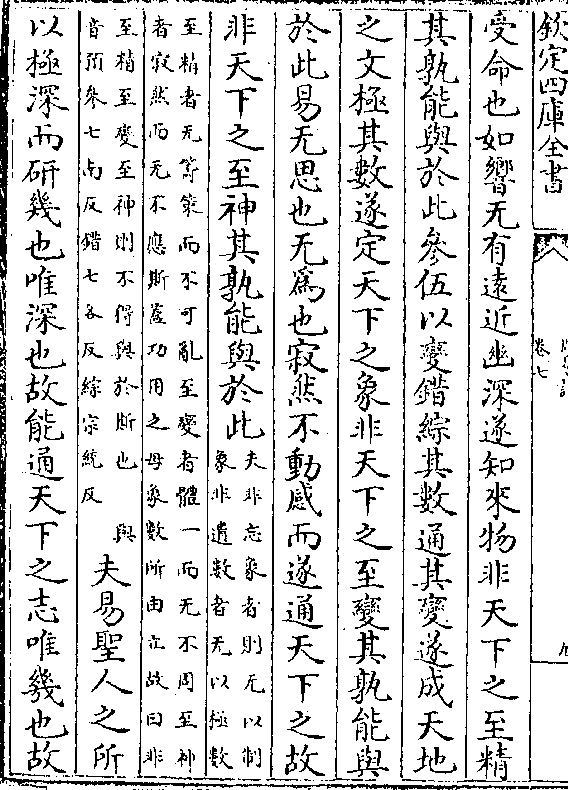 欽定四庫全書
卷七
受命也如響无有遠近幽深遂知來物非天下之至精
其孰能與於此參伍以變錯綜其數通其變遂成天地
之文極其數遂定天下之象非天下之至變其孰能與
於此易无思也无爲也寂然不動感而遂通天下之故
非天下之至神其孰能與於此
夫非忘象者則无以制
象非遺數者无以極數
至精者无籌策而不可亂至變者體一而无不周至神
者寂然而无不應斯蓋功用之母象數所由立故曰非
至精至變至神則不得與於斯也 與
音預參七南反錯七各反綜宗統反
夫易聖人之所
以極深而研幾也唯深也故能通天下之志唯幾也故